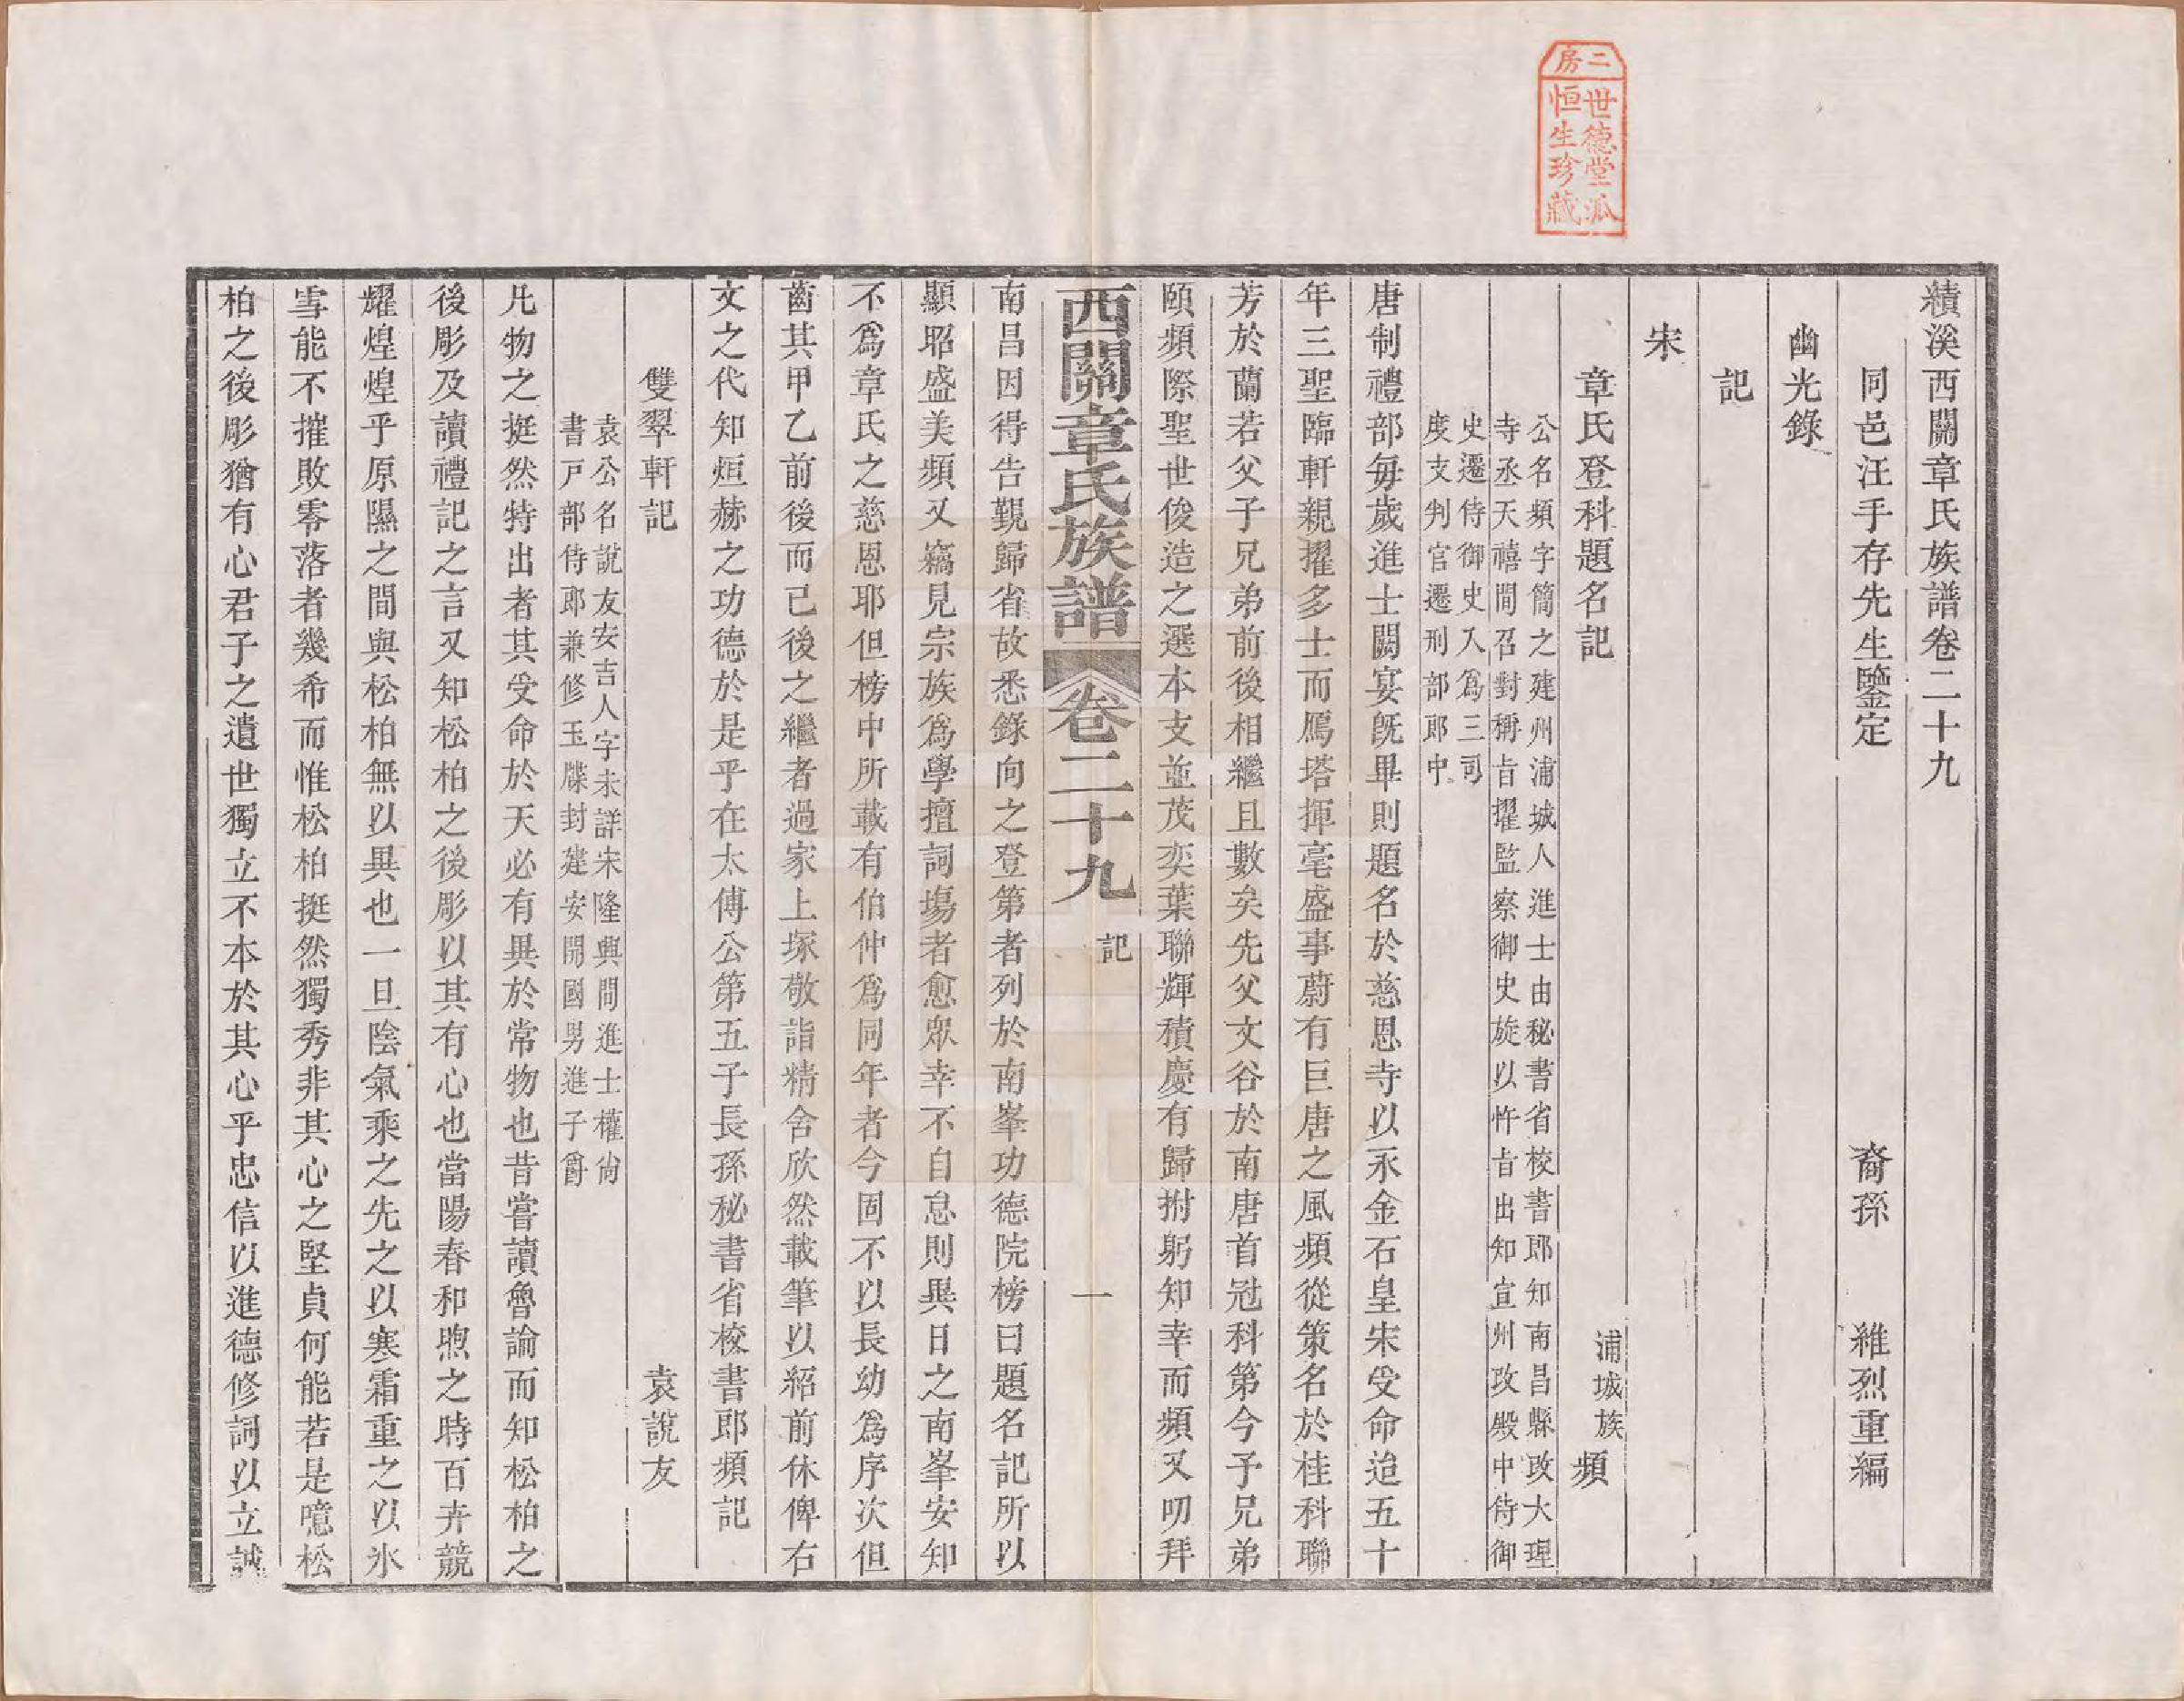 二房
世德堂派
恒生珍藏
績溪西關章氏族譜卷二十九
同邑汪手存先生鑒定　裔孫　維烈重編
幽光錄
記
宋
章氏登科題名記　浦城族頻
公名頻字簡之建州浦城人進士由秘書省校書郎知南昌縣改大理
寺丞天禧間召對稱旨擢監察御史旋以忤旨出知宣州改殿中侍御
史遷侍御史入爲三司
度支判官遷刑部郎中
唐制禮部每歲進士闕宴旣畢則題名於慈恩寺以永金石皇宋受命迨五十
年三聖臨軒親擢多士而鴈塔揮毫盛事蔚有巨唐之風頻從策名於桂科聯
芳於蘭若父子兄弟前後相繼且數矣先父文谷於南唐首冠科第今予兄弟
頤頻際聖世俊造之選本支並茂奕葉聯輝積慶有歸拊躬知幸而頻又叨拜
西關章氏族譜　卷二十九　記　一
南昌因得告覲歸省故悉錄向之登第者列於南峯功德院榜曰題名記所以
顯昭盛美頻又竊見宗族爲學擅詞塲者愈眾幸不自怠則異日之南峯安知
不爲章氏之慈恩耶但榜中所載有伯仲爲同年者今固不以長幼爲序次但
齒其甲乙前後而已後之繼者過家上塚敬詣精舍欣然載筆以紹前休俾右
文之代知烜赫之功德於是乎在太傅公第五子長孫秘書省校書郎頻記
雙翠軒記　袁說友
袁公名說友安吉人字未詳宋隆興間進士權尚
書戸部侍郎兼修玉牒封建安開國男進子爵
凡物之挺然特出者其受命於天必有異於常物也昔嘗讀魯論而知松柏之
後彫及讀禮記之言又知松柏之後彫以其有心也當陽春和煦之時百卉競
耀煌煌乎原隰之間與松柏無以異也一旦陰氣乘之先之以寒霜重之以氷
雪能不摧敗零落者幾希而惟松柏挺然獨秀非其心之堅貞何能若是噫松
柏之後彫猶有心君子之遺世獨立不本於其心乎忠信以進德修詞以立誠